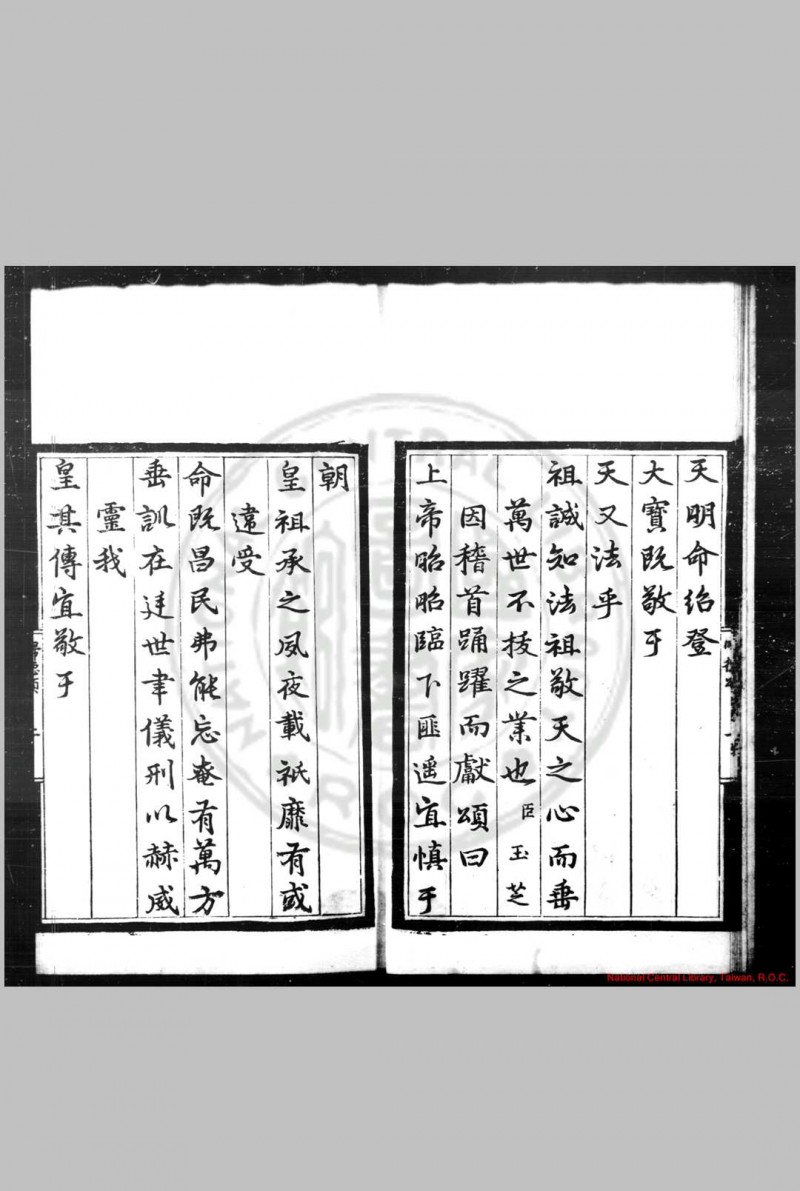 天明命紹登
大寶既敬于
天又法乎
祖誠知法祖敬天之心而垂
萬世不拔之業也臣玉芝
因稽首踊躍而獻頌曰
上帝昭昭臨下匪遥宜慎于
朝
皇祖承之夙夜載祇靡有或
違受
命既昌民弗能忘奄有萬方
垂訓在廷世聿儀刑以赫威
靈我
皇其傳宜敬于
National Central Library, Taiwan, R.O.C.